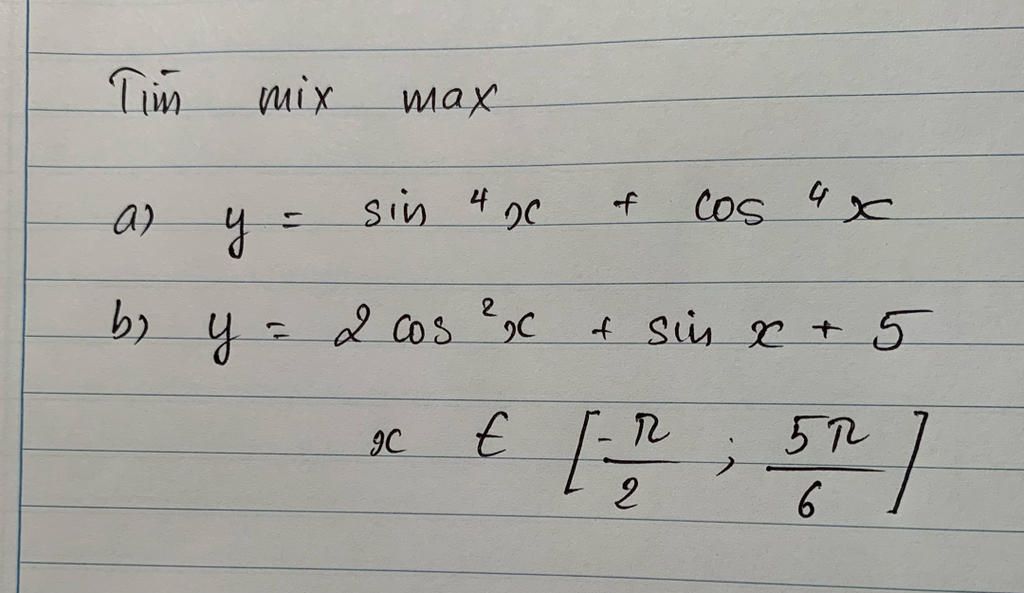 Tim mix max
a) y = sin ⁴x + cos ⁴x
b) y = 2 cos ²x + sin x + 5
x ∈ [-π/2 ; 5π/6]